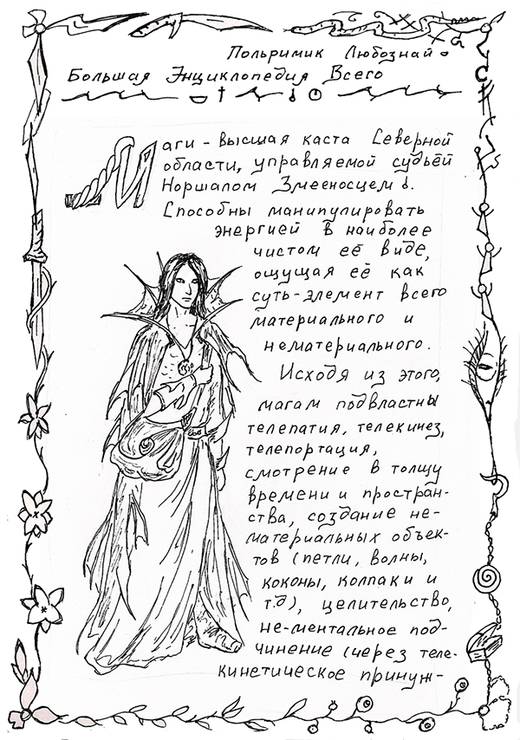 Польримик Любознай
Большая Энциклопедия Всего
Маги - высшая каста Северной
области, управляемой судьёй
Норшалом Змееносцем.
Способны манипулировать
энергией в наиболее
чистом её виде,
ощущая её как
суть-элемент всего
материального и
нематериального.
Исходя из этого,
магам подвластны
телепатия, телекинез,
телепортация,
смотрение в толщу
времени и простран-
ства, создание не-
материальных объек-
тов (петли, волны,
коконы, колпаки и
т.д), целительство,
не-ментальное под-
чинение (через теле-
кинетическое принуж-